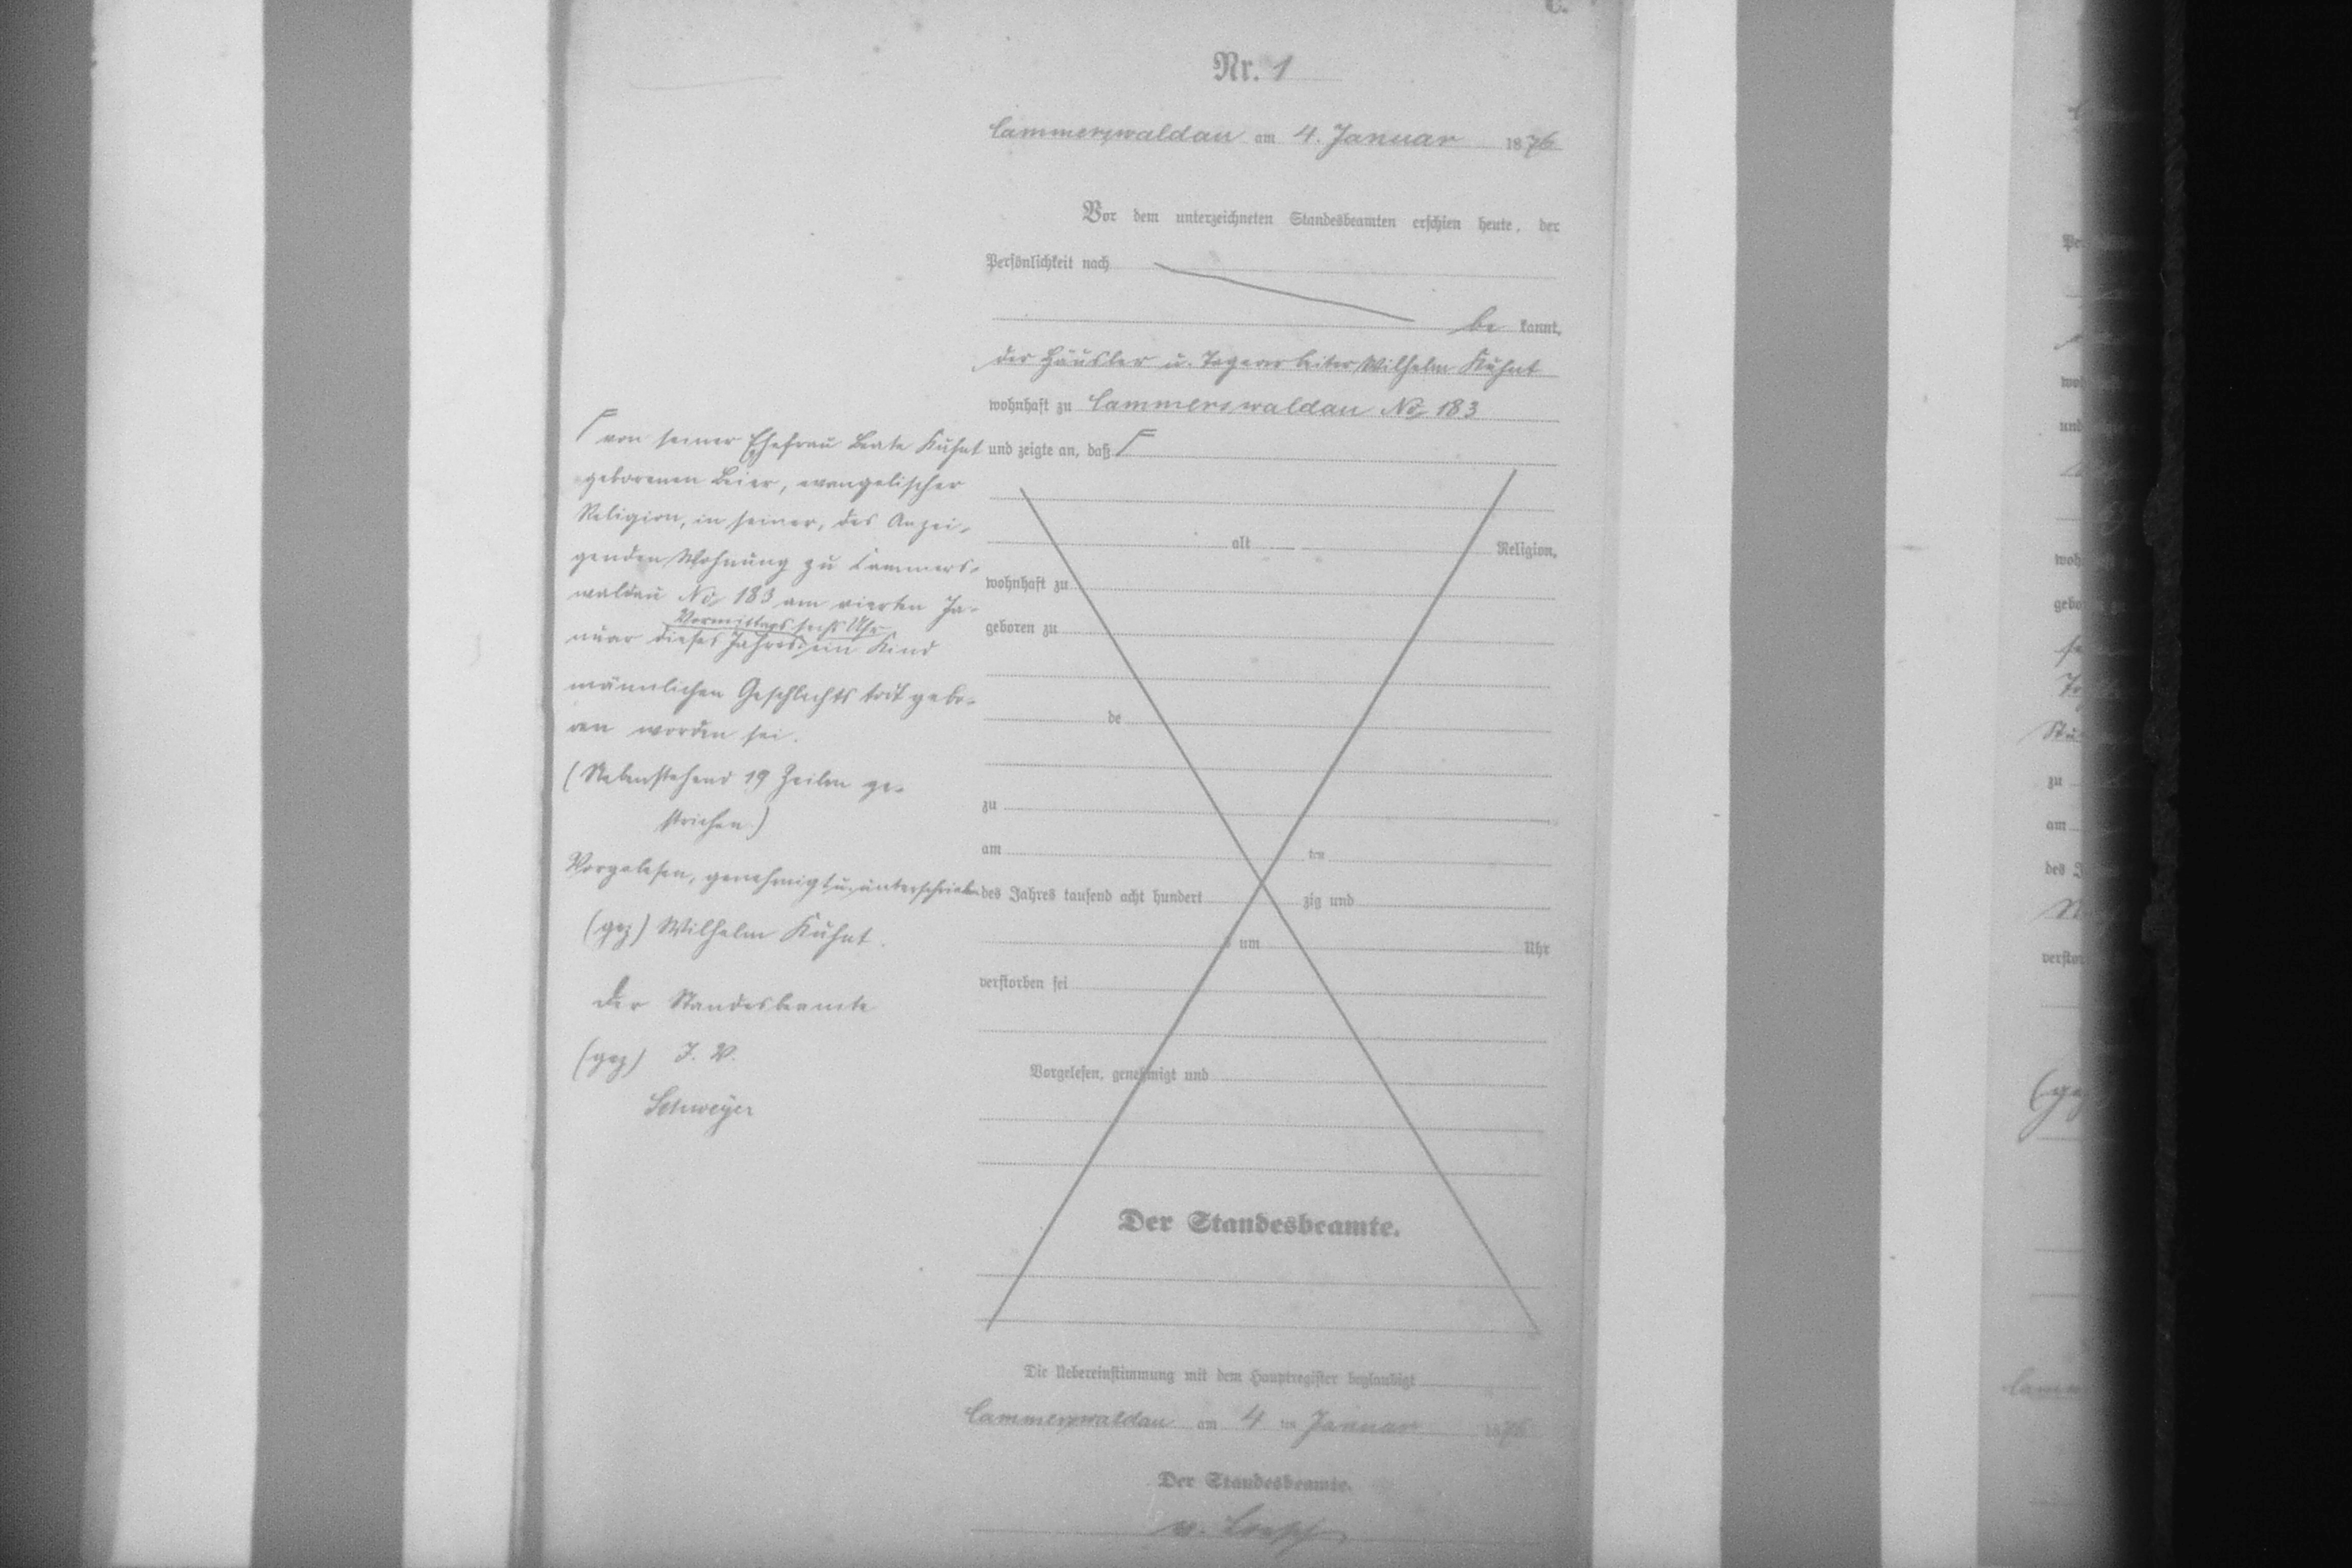 C.
Nr. 1
Cammerswaldau am 4. Januar 1876
Vor dem unterzeichneten Standesbeamten erschien heute, der
Persönlichkeit nach
be kannt,
der Häusler u. Tagearbeiter Wilhelm Kuhnt
wohnhaft zu Cammerswaldau No 183
und zeigte an, daß Γ
Γ von seiner Ehefrau Beate Kuhnt
geborenen Beier, evangelischer
Religion, in seiner, des Anzei-
genden Wohnung zu Cammers-
waldau No 183 am vierten Ja-
Vormittags sechs Uhr
nuar dieses Jahres ein Kind
männlichen Geschlechts todt gebo-
ren worden sei.
(Nebenstehend 19 Zeilen ge-
strichen)
Vorgelesen, genehmigt u. unterschrieben
(gez) Wilhelm Kuhnt.
Der Standesbeamte
(gez) J. V.
Schweyer
alt Religion,
wohnhaft zu
geboren zu
de
zu
am ten
des Jahres tausend acht hundert zig und
um Uhr
verstorben sei
Vorgelesen, genehmigt und
Der Standesbeamte.
Die Uebereinstimmung mit dem Hauptregister beglaubigt
Cammerswaldau am 4 ten Januar 1876
Der Standesbeamte.
v.